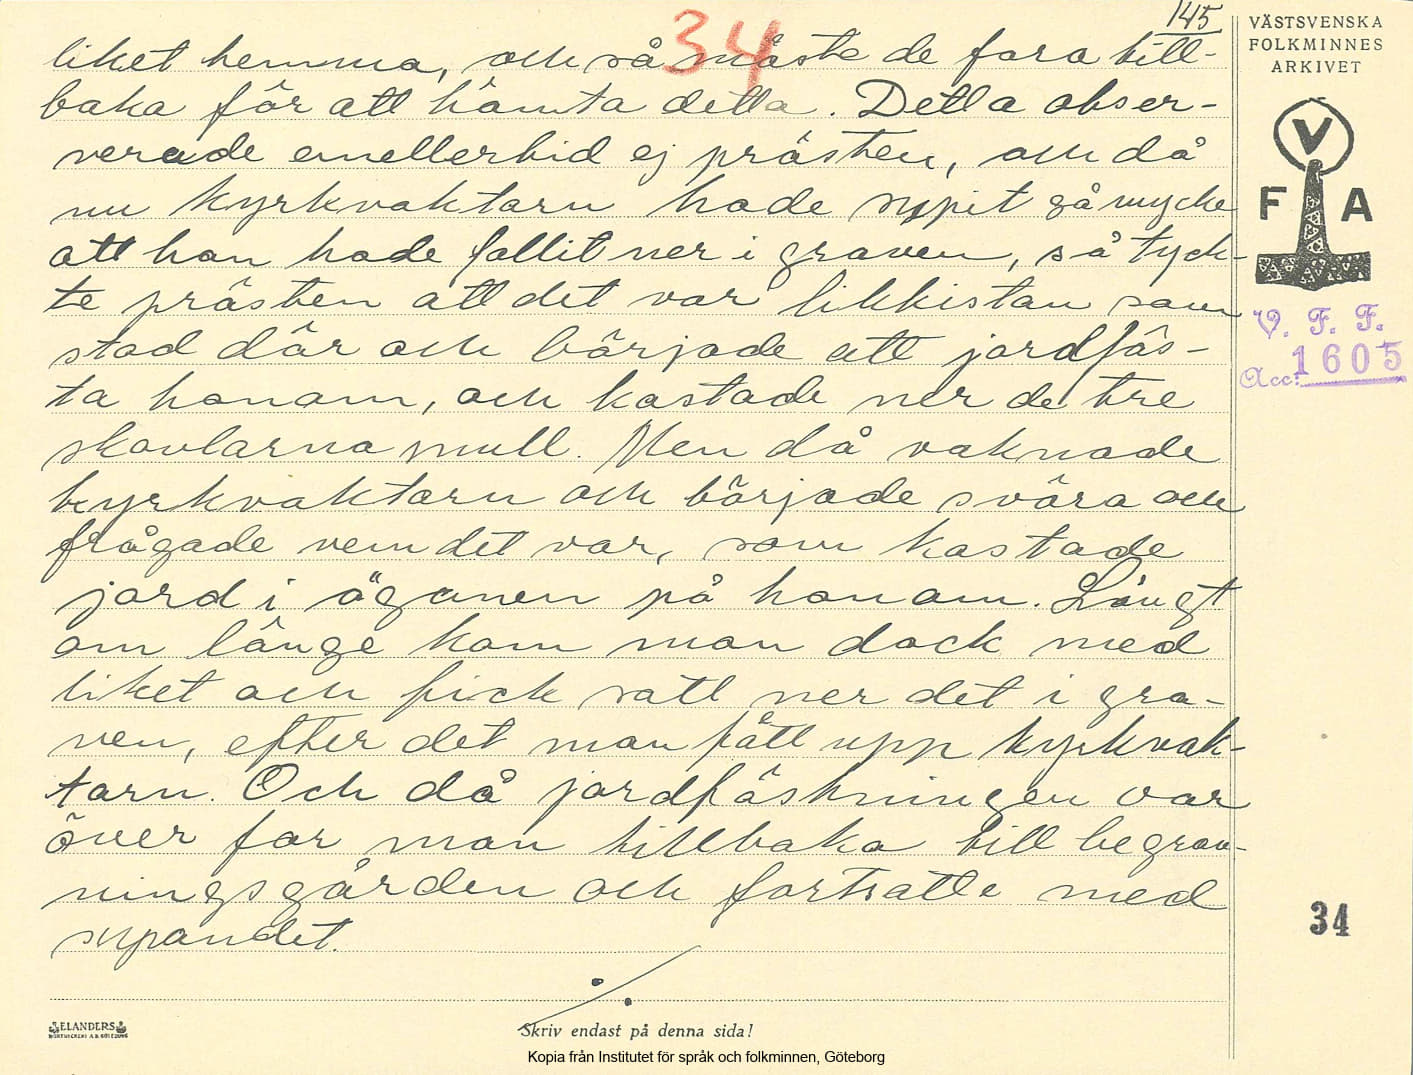 145
34
liket hemma, och så måste de fara till-
baka för att hämta detta. Detta obser-
verade emellertid ej prästen, och då
nu kyrkvaktarn hade supit så mycke
att han hade fallit ner i graven, så tyck-
te prästen att det var likkistan som
stod där och började att jordfäs-
ta honom, och kastade ner de tre
skovlarna mull. Men då vaknade
kyrkvaktarn och började svära och
frågade vem det var, som kastade
jord i ögonen på honom. Långt
om länge kom man dock med
liket och fick satt ner det i gra-
ven, efter det man fått upp kyrkvak-
tarn. Och då jordfäskningen var
över for man tillbaka till begrav-
ningsgården och fortsatte med
supandet.
VÄSTSVENSKA
FOLKMINNES
ARKIVET
V
F A
V. F. F.
Acc: 1605
34
ELANDERS
BOKTRYCKERI A.B. GÖTEBORG
Skriv endast på denna sida!
Kopia från Institutet för språk och folkminnen, Göteborg